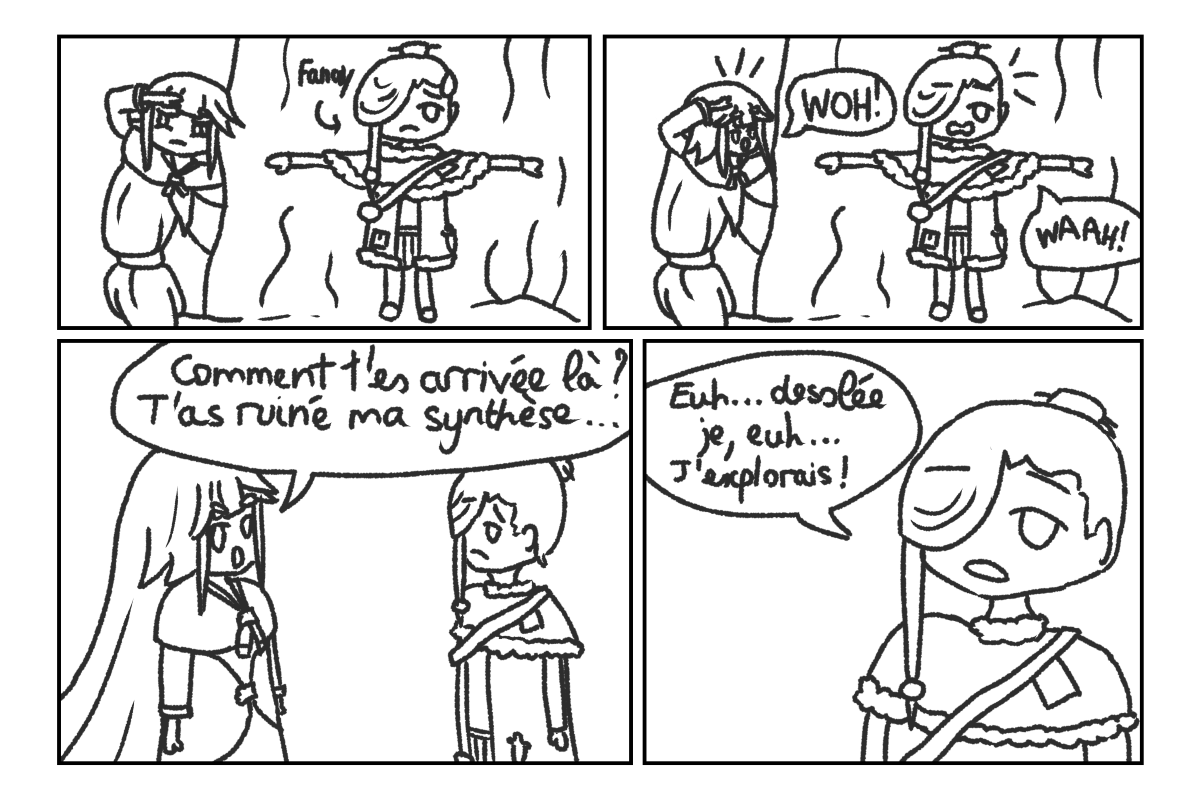 Fanay
WOH!
WAAH!
Comment t'es arrivée là?
T'as ruiné ma synthèse...
Euh... desolée
je, euh...
J'explorais!